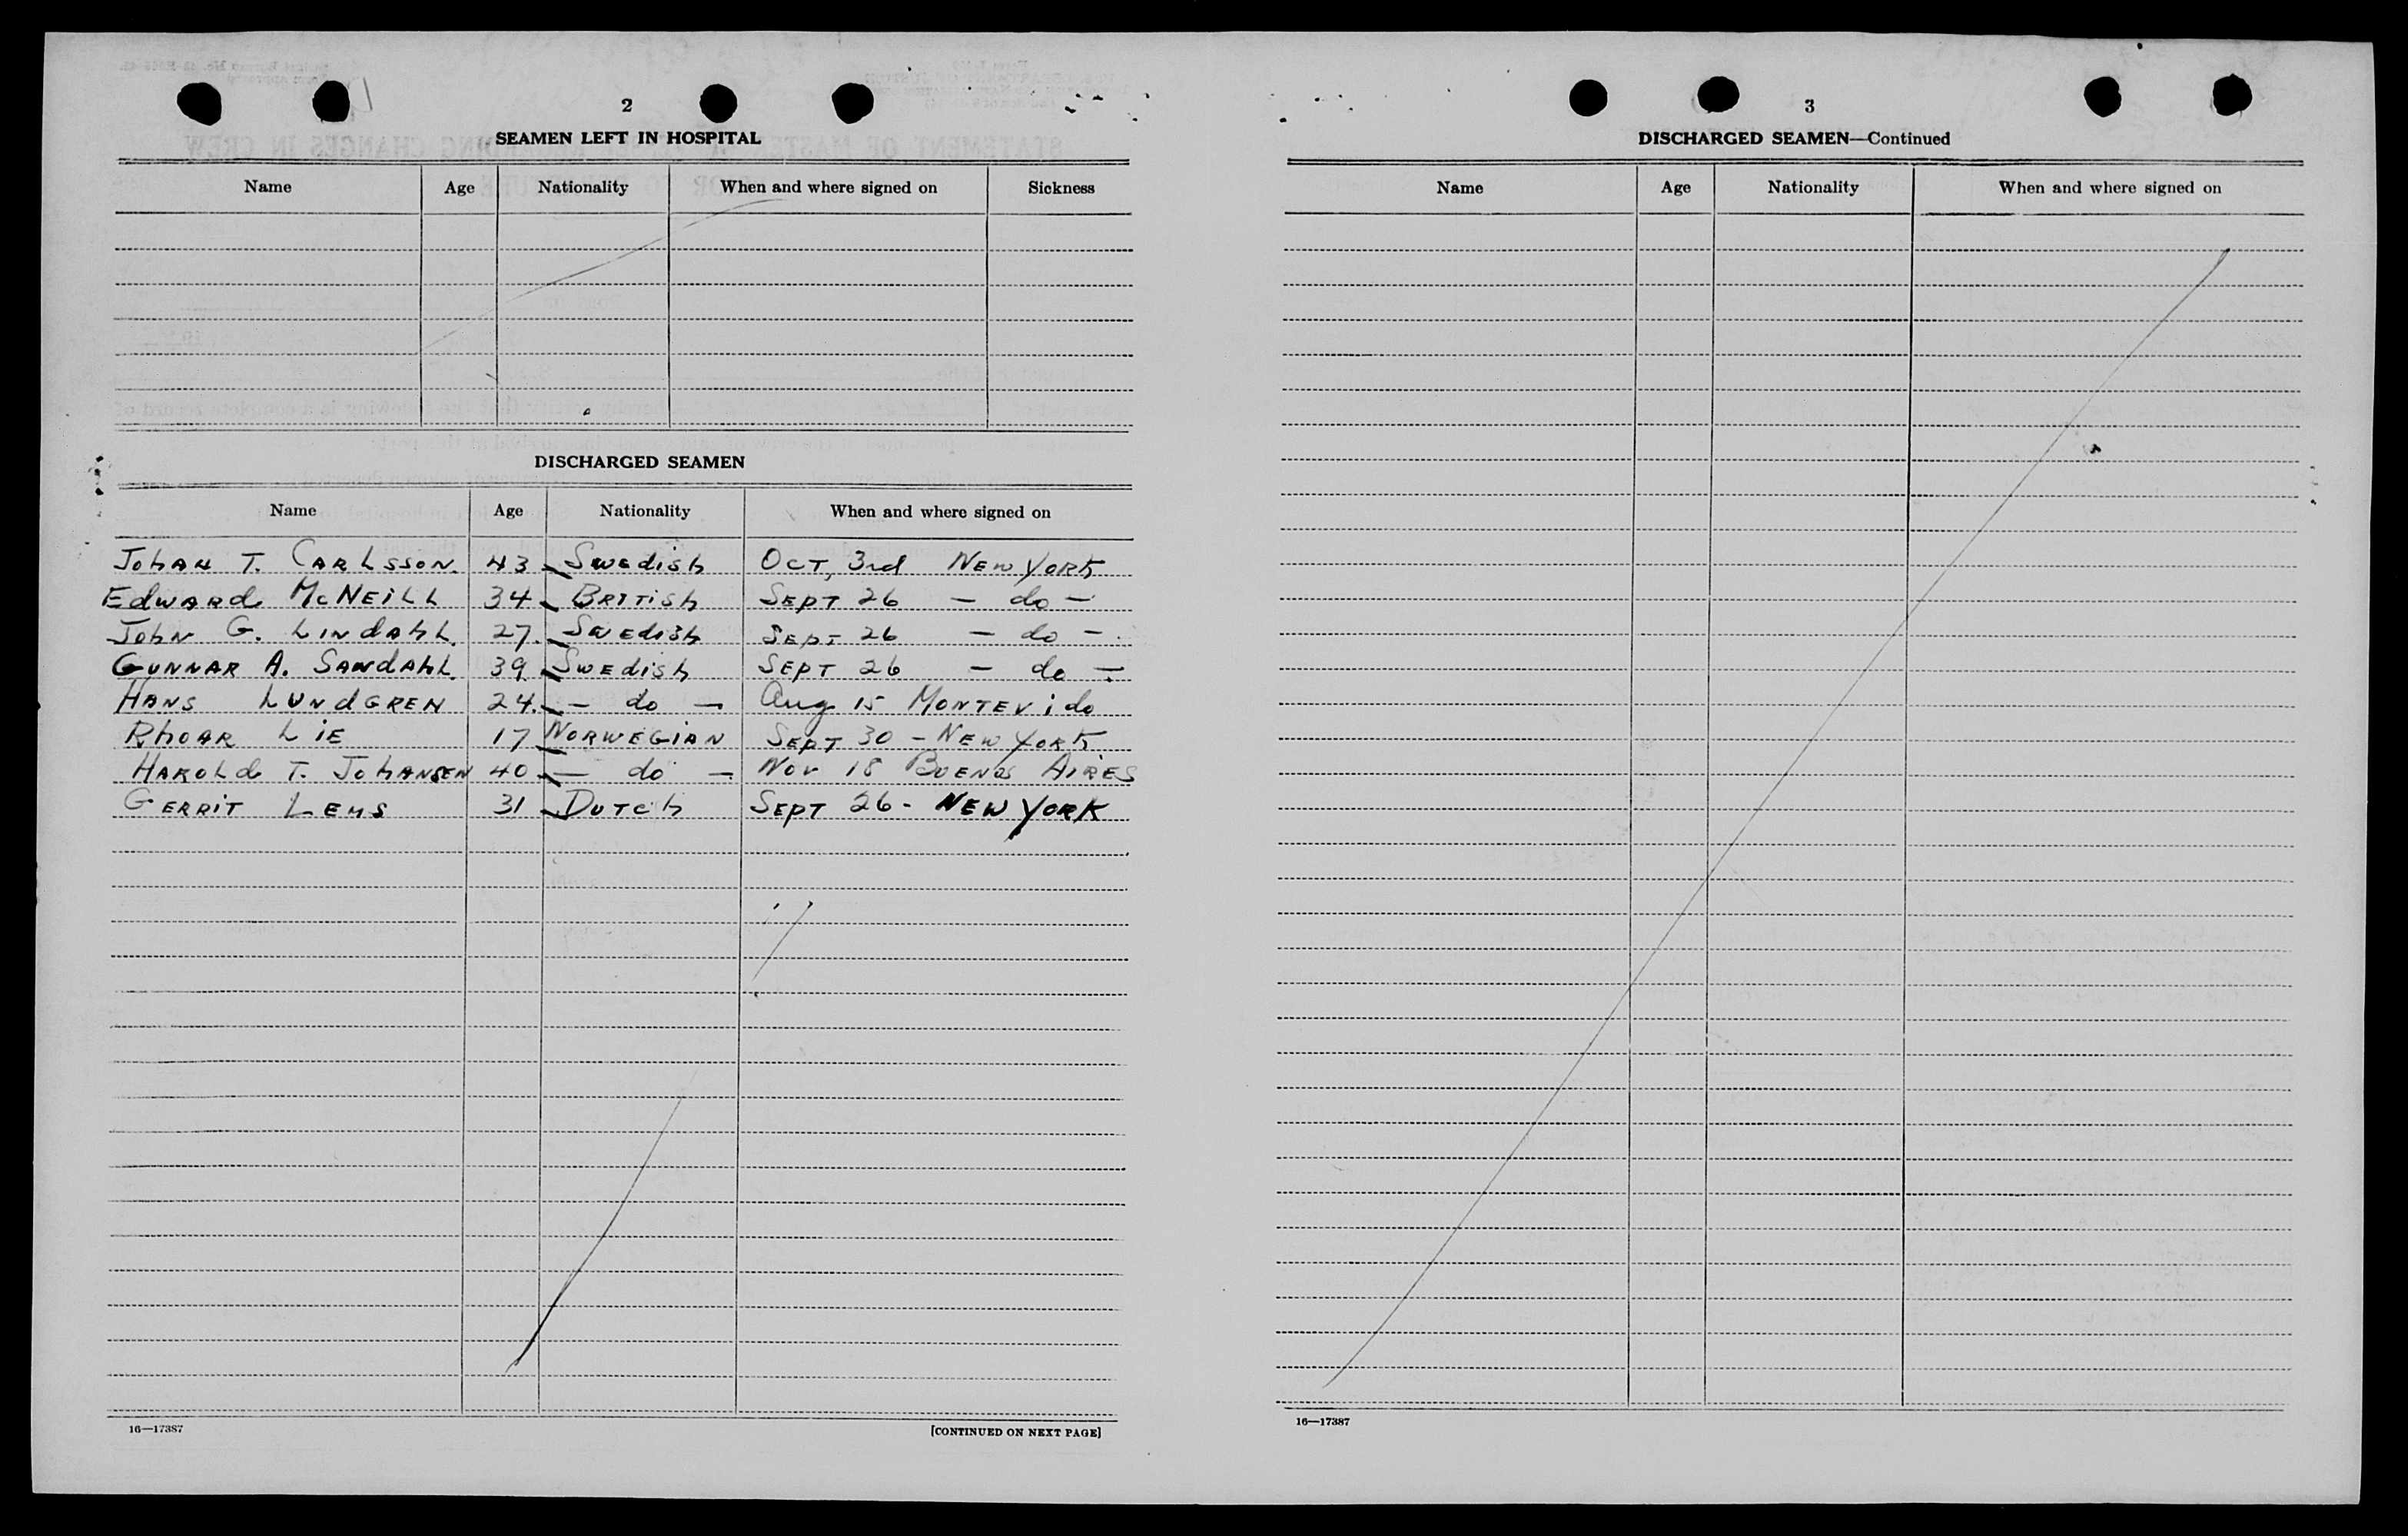 2
SEAMEN LEFT IN HOSPITAL
Name Age Nationality When and where signed on Sickness
DISCHARGED SEAMEN
Name Age Nationality When and where signed on
Johan T. Carlsson. 43 Swedish Oct, 3rd New York
Edward McNeill 34 British Sept 26 — do —
John G. Lindahl. 27. Swedish Sept 26 — do —.
Gunnar A. Sandahl. 39 Swedish Sept 26 — do —.
Hans Lundgren 24. — do — Aug 15 Montevido
Rhoar Lie 17 Norwegian Sept 30 - New York
Harold T. Johansen 40 — do — Nov 18 Buenos Aires
Gerrit Lems 31 Dutch Sept 26 - New York
16—17387 [CONTINUED ON NEXT PAGE]
3
DISCHARGED SEAMEN—Continued
Name Age Nationality When and where signed on
16—17387